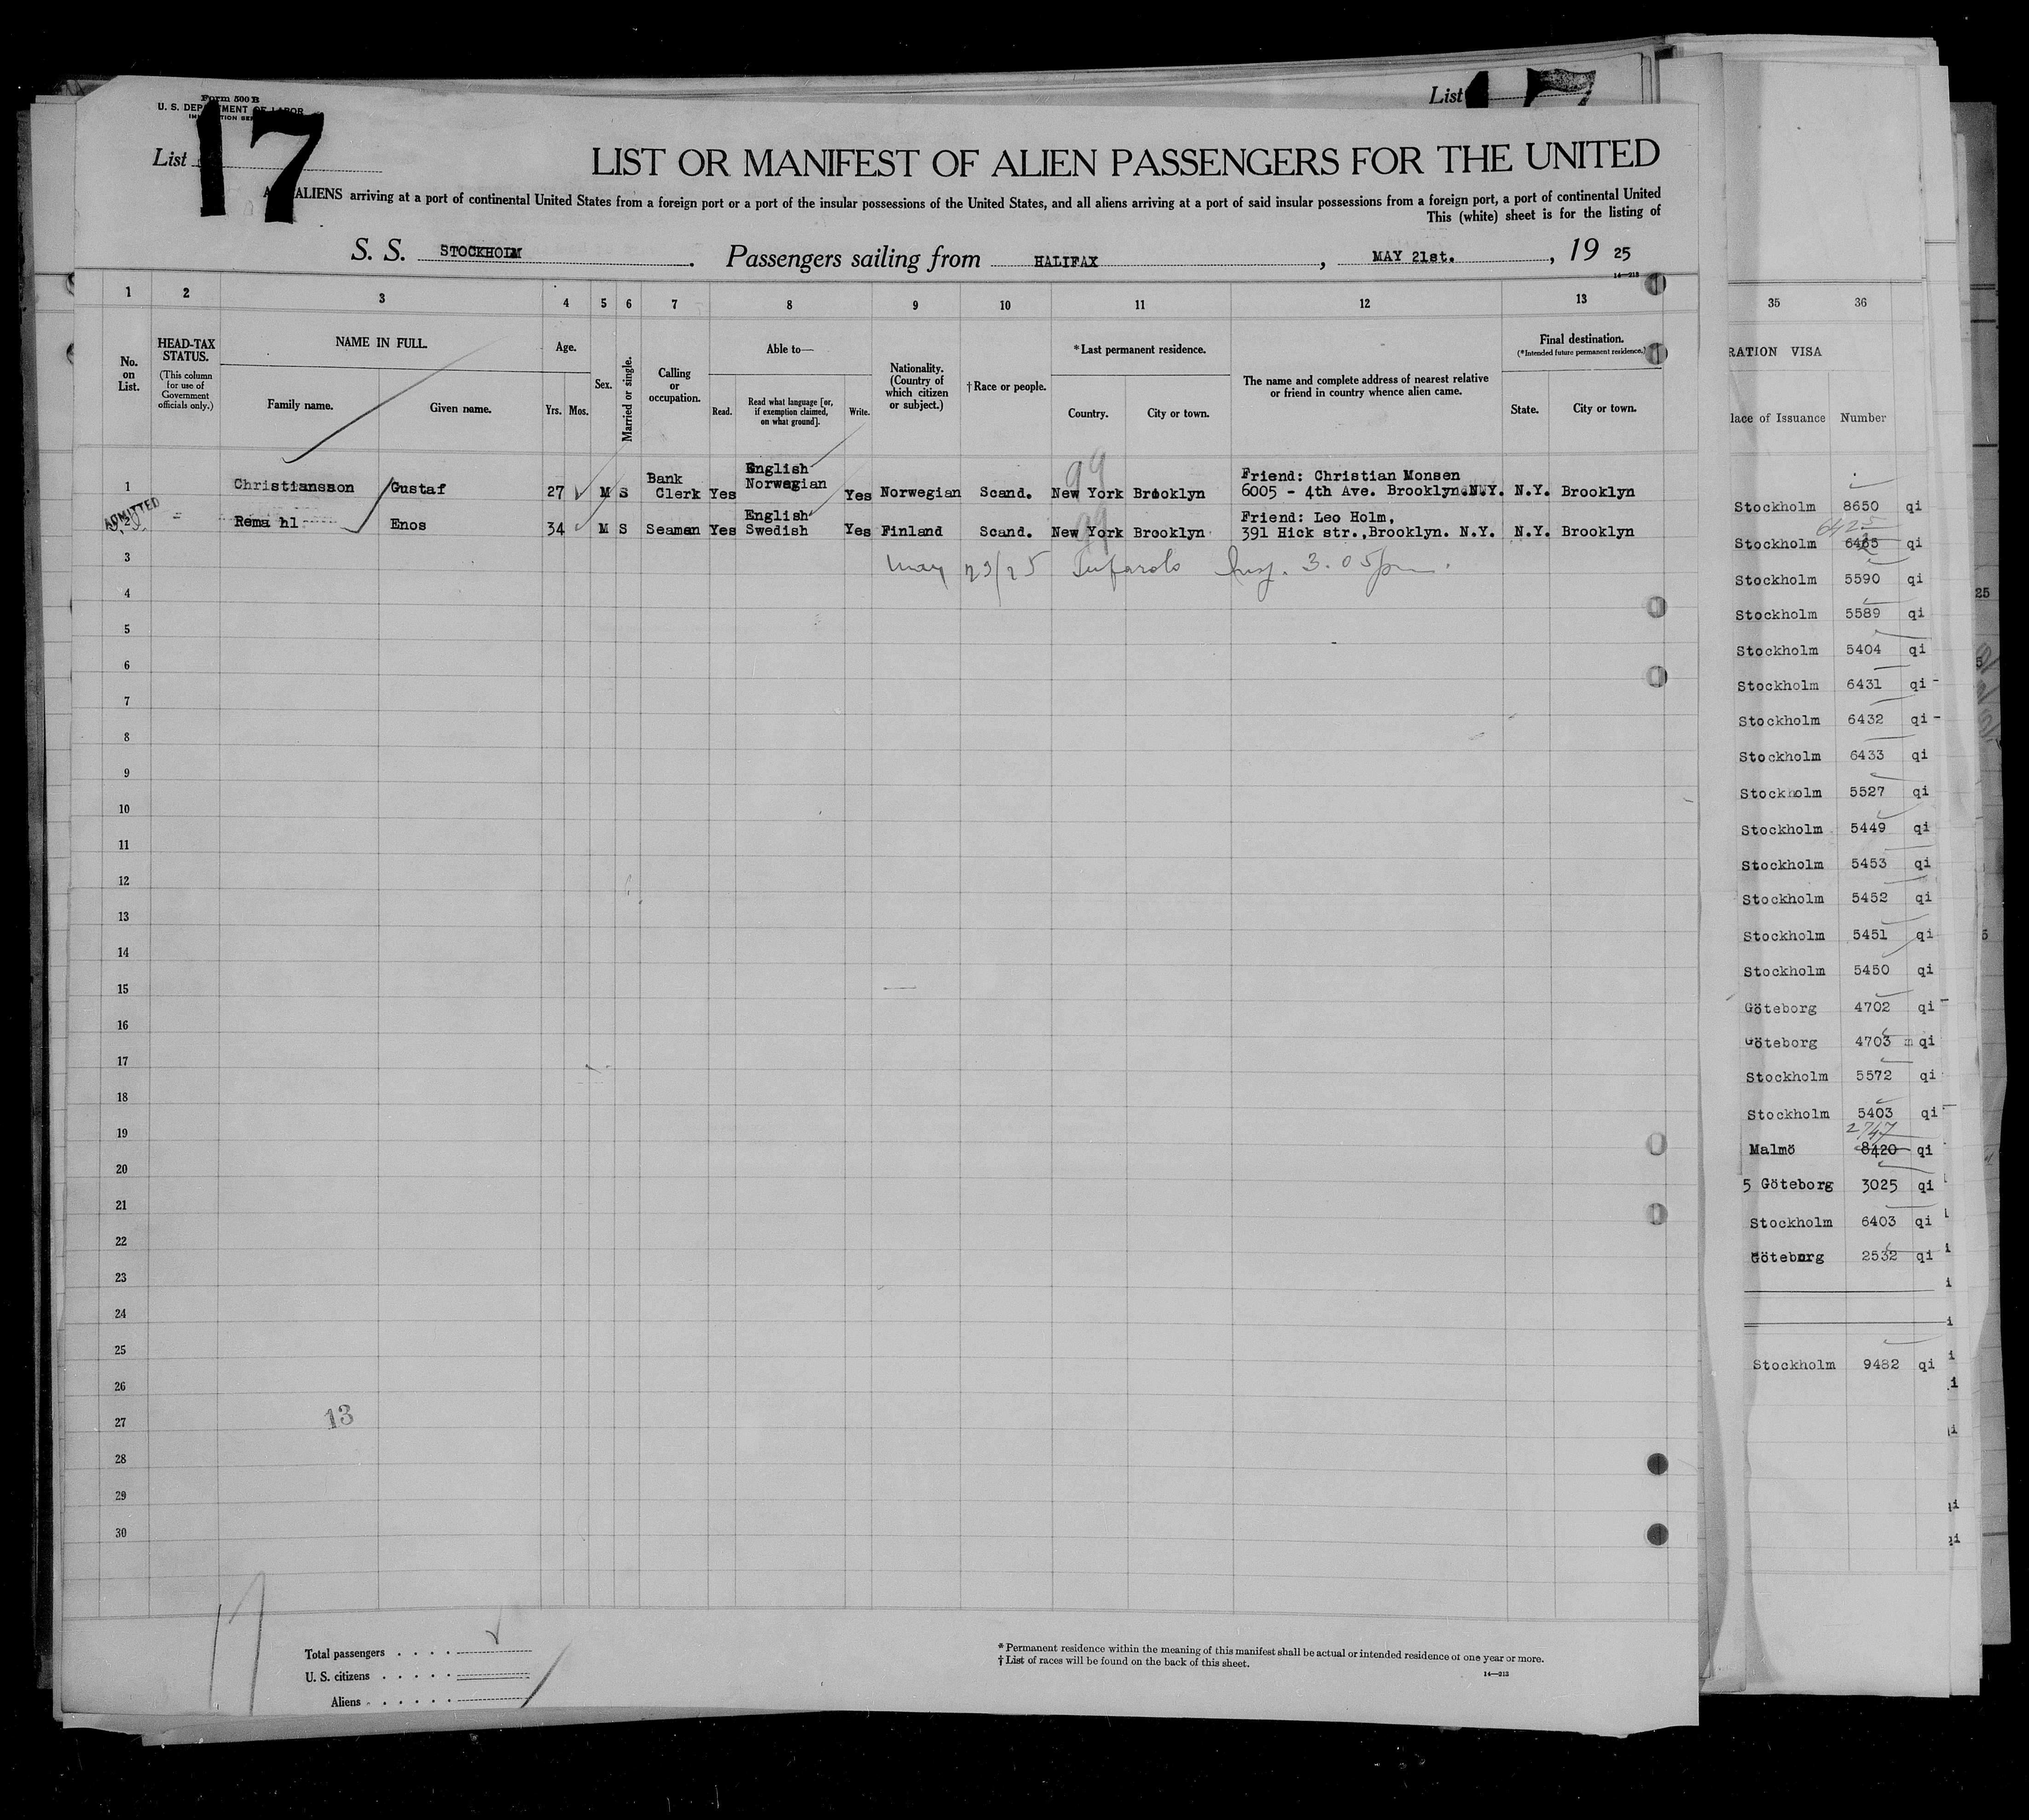 Form 500 B
U. S. DEPARTMENT OF LABOR
List 17
List 17
LIST OR MANIFEST OF ALIEN PASSENGERS FOR THE UNITED
ALIENS arriving at a port of continental United States from a foreign port or a port of the insular possessions of the United States, and all aliens arriving at a port of said insular possessions from a foreign port, a port of continental United
This (white) sheet is for the listing of
S. S. STOCKHOLM. Passengers sailing from HALIFAX, MAY 21st., 19 25
14—213
1 2 3 4 5 6 7 8 9 10 11 12 13
No. on List.
HEAD-TAX STATUS.
(This column for use of Government officials only.)
NAME IN FULL.
Family name. Given name.
Age.
Yrs. Mos.
Sex.
Married or single.
Calling or occupation.
Able to—
Read. Read what language [or, if exemption claimed, on what ground]. Write.
Nationality. (Country of which citizen or subject.)
† Race or people.
* Last permanent residence.
Country. City or town.
The name and complete address of nearest relative or friend in country whence alien came.
Final destination.
(*Intended future permanent residence.)
State. City or town.
99
1 Christiansson Gustaf 27 M S Bank Clerk Yes English Norwegian Yes Norwegian Scand. New York Brooklyn Friend: Christian Monsen 6005 - 4th Ave. Brooklyn.N.Y. N.Y. Brooklyn
ADMITTED
2 Rema hl Enos 34 M S Seaman Yes English Swedish Yes Finland Scand. New York Brooklyn Friend: Leo Holm, 391 Hick str.,Brooklyn. N.Y. N.Y. Brooklyn
99
3
May 23/25 Insp. 3.05 pm.
4
5
6
7
8
9
10
11
12
13
14
15
16
17
18
19
20
21
22
23
24
25
26
27
13
28
29
30
17
Total passengers . . . .
U. S. citizens . . . . .
Aliens . . . . . .
* Permanent residence within the meaning of this manifest shall be actual or intended residence of one year or more.
† List of races will be found on the back of this sheet.
14—213
35 36
RATION VISA
lace of Issuance Number
Stockholm 8650 qi
6425
Stockholm 6465 qi
Stockholm 5590 qi
Stockholm 5589 qi
Stockholm 5404 qi
Stockholm 6431 qi
Stockholm 6432 qi
Stockholm 6433 qi
Stockholm 5527 qi
Stockholm 5449 qi
Stockholm 5453 qi
Stockholm 5452 qi
Stockholm 5451 qi
Stockholm 5450 qi
Göteborg 4702 qi
Göteborg 4703 qi
Stockholm 5572 qi
Stockholm 5403 qi
2747
Malmö 8420 qi
5 Göteborg 3025 qi
Stockholm 6403 qi
Göteborg 2532 qi
Stockholm 9482 qi
25